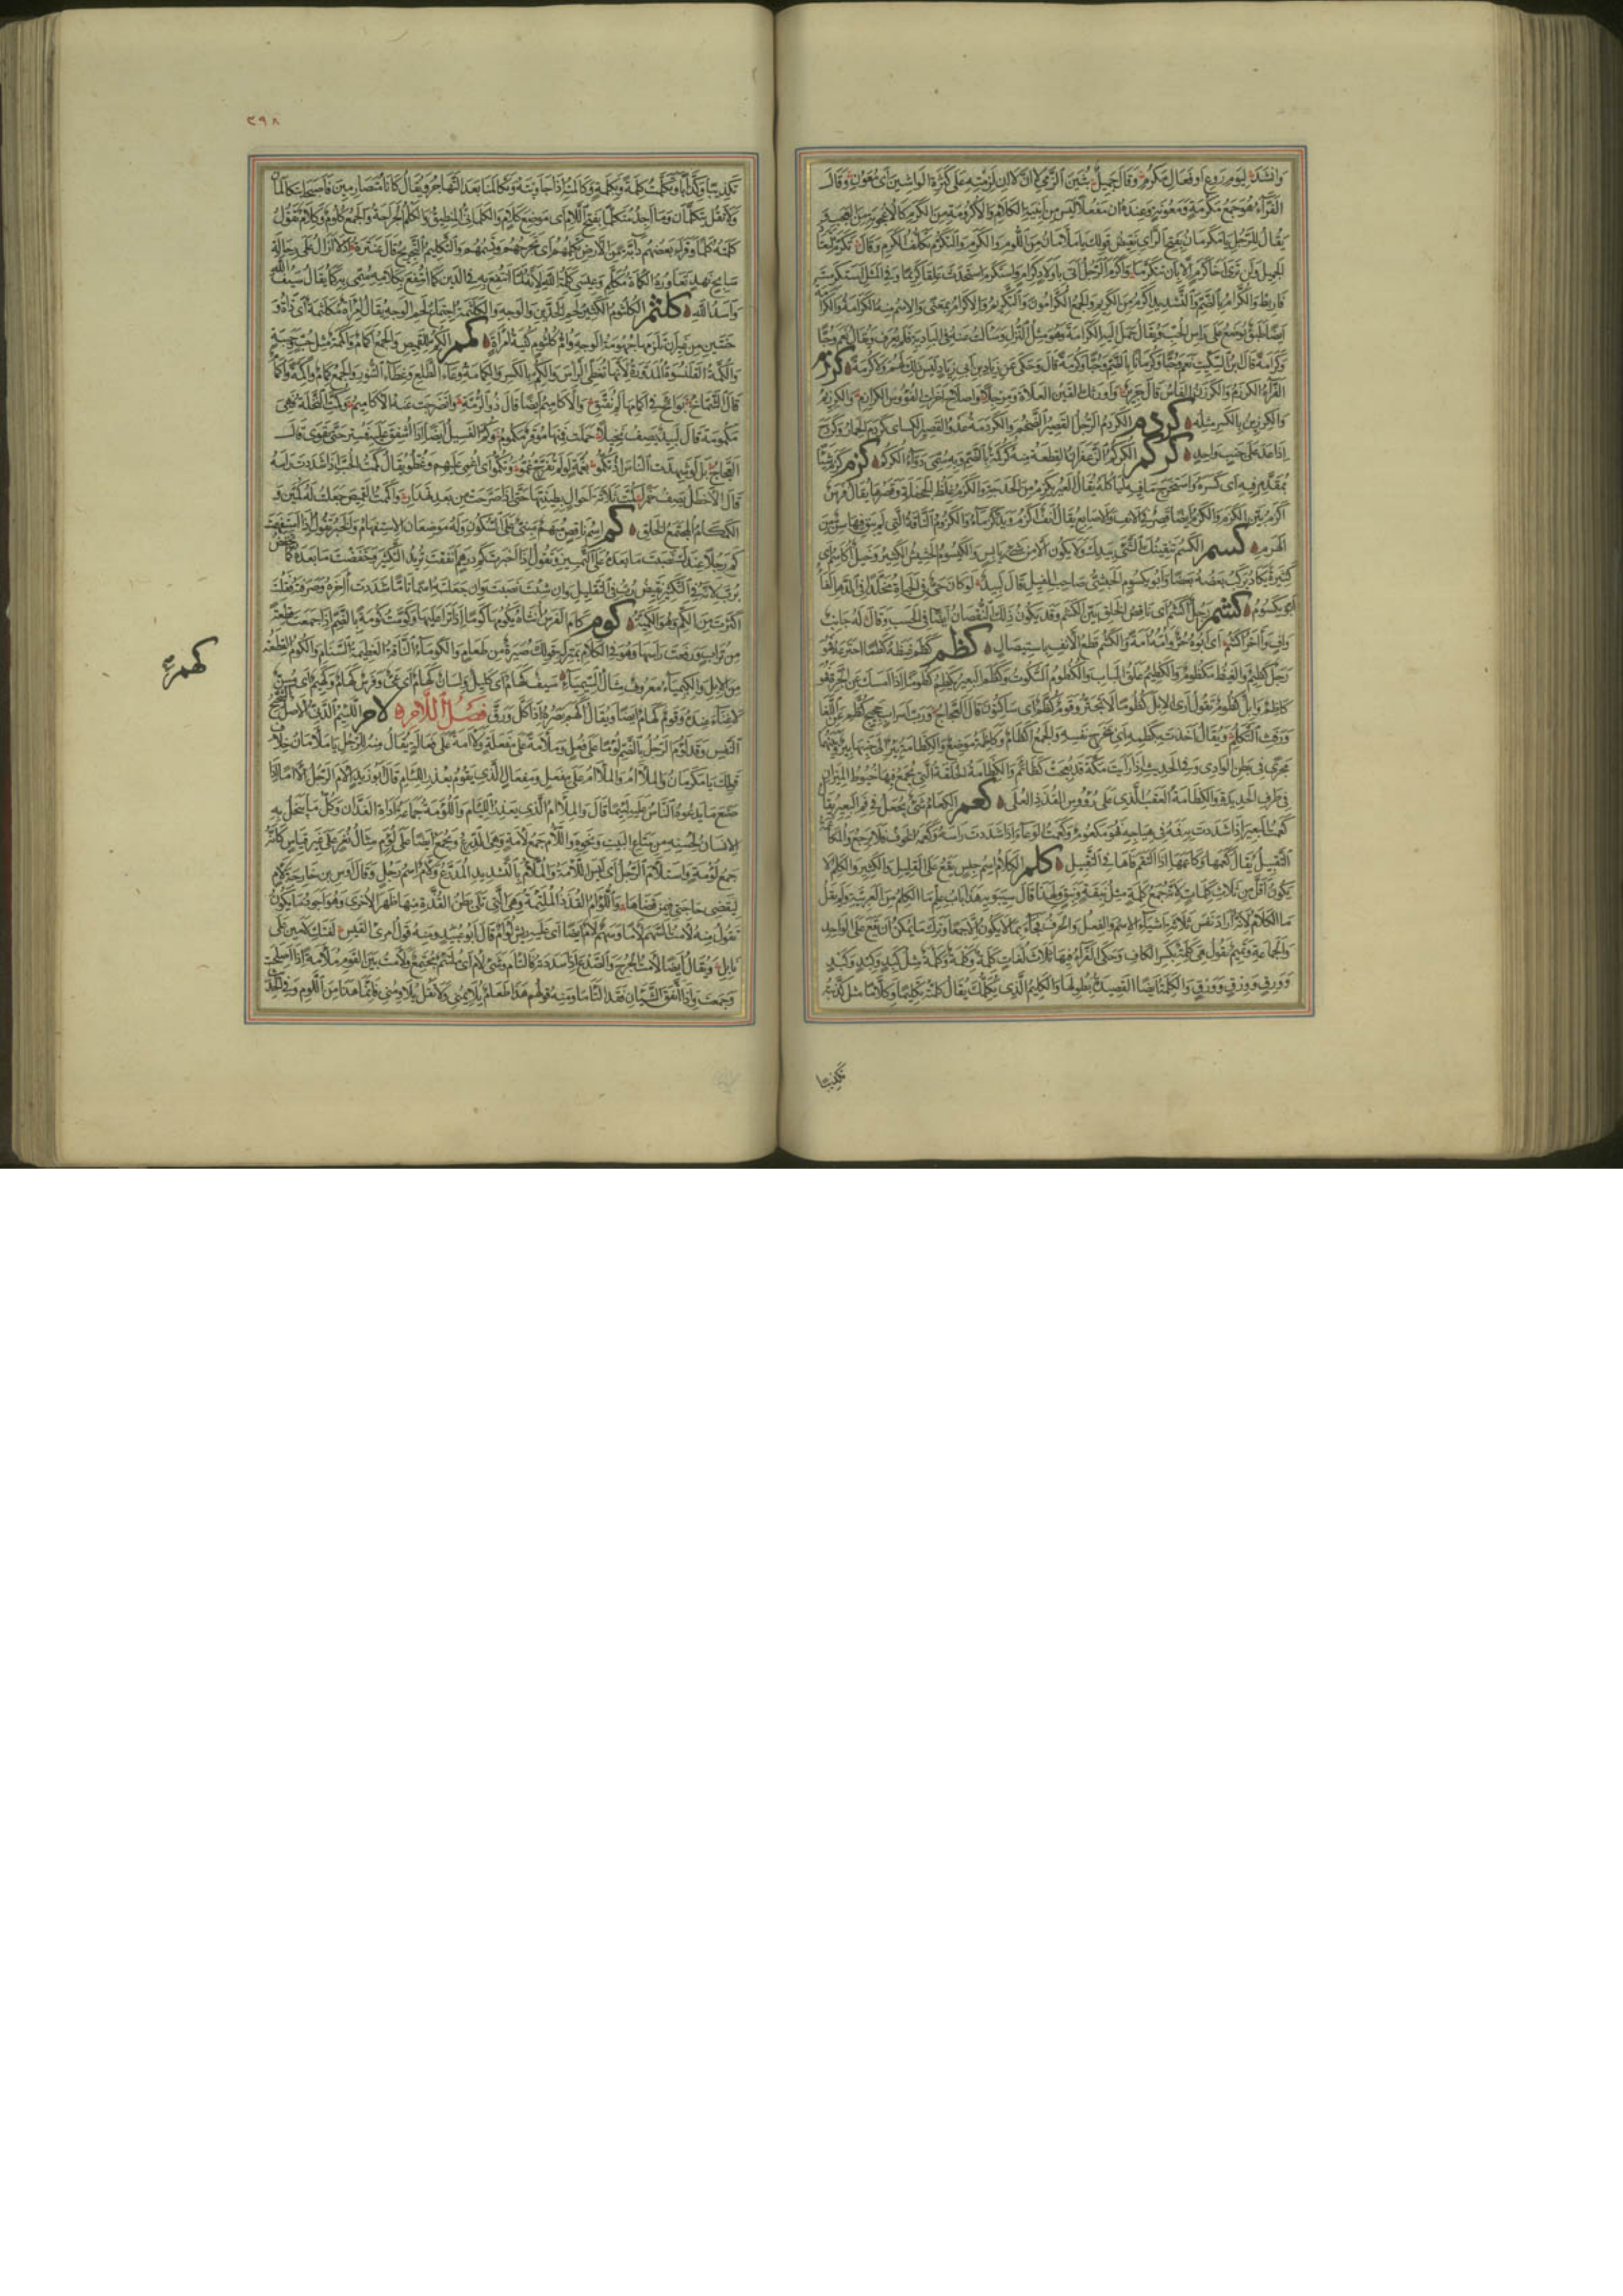 وانشد ليوم روع او فعال مكرم وقال جميل بثين الزمي لا ان لا ان لزمته على كثرة الواشين اى معون وقال
الفراء هو جمع مكرمة ومعونة وعنده ان مفعلا ليس من ابنية الكلام والاكرومة من الكرم كالاعجوبة من العجب
يقال للرجل يا مكرمان بفتح الراى نقيض قولك يا ملامان من اللوم والكرم والتكرم تكلف الكرم وقال تكرم لتعتاد
الجميل ولن ترى اخا كرم الا بان يتكرما واكرم الرجل اتى باولاد كرام واستكرم استحدث علقا كريما وفى المثل استكرمت
فاربط والكرام بالضم والتشديد اكرم من الكريم والجمع الكرامون والتكريم والاكرام بمعنى والاسم منه الكرامة والكرامة
ايضا طبق يوضع على راس الحب ويقال حمل اليه الكرامة وهو مثل النزل وسالت عنه فى البادية فلم يعرف ويقال نعم وحبا
وكرامة قال ابن السكيت نعم وحبا وكرمانا بالضم وحبا وكرمة قال وحكى عن زياد بن ابى زياد ليس ذلك لهم ولا كرمة كرزم
الفراء الكرزم والكرزن الفاس قال جرير واورثك القين العلاة ومرجلا واصلاح اخرات الفؤوس الكرازم والكرزيم
والكرزين بالكسر مثله كردم الكردم الرجل القصير الضخم والكردمة عدو القصير الكسائى كردم الحمار وكردح
اذا عدا على جنب واحد كركم الكركم الزعفران القطعة منه كركمة بالضم وبه سمى دواء الكركم كزم كزم شيئا
بمقدم فيه اى كسره واستخرج ما فيه لياكله يقال العير يكزم من الحدج والكزم غلظ الجحفلة وقصرها يقال فرس
اكزم بين الكزم والكزم ايضا قصر فى الانف والاصابع يقال انف اكزم ويد كزماء والكزوم الناقة التى لم يبق فيها سن من
الهرم كسم الكسم تنقيتك الشئ بيدك ولا يكون الا من شئ يابس والكيسوم الحشيش الكثير وخيل اكاسم اى
كثيرة يكاد يركب بعضه بعضا وابو يكسوم الحبشى صاحب الفيل قال لبيد لو كان حى فى الحياة مخلدا فى الدهر الفاه
ابو يكسوم كشم رجل اكشم اى ناقص الخلق بين الكشم وقد يكون ذلك النقصان ايضا فى الحسب وقال له جانب
واف وآخر اكشم اى ابوه حر وامه امة والكشم قطع الانف باستيصال كظم كظم غيظه كظما اجترعه فهو
رجل كظيم والغيظ مكظوم والكظيم غلق الباب والكظوم السكوت وكظم البعير يكظم كظوما اذا امسك عن الجرة فهو
كاظم وابل كظوم تقول ارى الابل كظوما لا تجتر وقوم كظم اى ساكتون قال العجاج ورب اسراب حجيج كظم عن اللغا
ورفث التكلم ويقال اخذت بكظمه اى بمخرج نفسه والجمع اكظام وكاظمة موضع والكظامة بئر الى جنبها بئر وبينهما
مجرى فى بطن الوادى وفى الحديث اذا رايت مكة قد بعجت كظائم والكظامة الحلقة التى تجمع فيها خيوط الميزان
فى طرف الحديدة والكظامة العقب الذى على رؤوس القذذ العليا كعم الكعام شئ يجعل فى فم البعير يقال
كعمت البعير اذا شددت به فمه فى هياجه فهو مكعوم وكعمت الوعاء اذا شددت راسه وكعمه الخوف فلا يرجع والمكاعمة
التقبيل يقال كعمها وكاعمها اذا التقم فاها فى التقبيل كلم الكلام اسم جنس يقع على القليل والكثير والكلم لا
يكون اقل من ثلاث كلمات لانه جمع كلمة مثل نبقة ونبق ولهذا قال سيبويه هذا باب علم ما الكلم من العربية ولم يقل
ما الكلام لانه اراد نفس ثلاثة اشياء الاسم والفعل والحرف فجاء بما لا يكون الا جمعا وترك ما يمكن ان يقع على الواحد
والجماعة وتميم تقول هى كلمة بكسر الكاف وحكى الفراء فيها ثلاث لغات كلمة وكلمة وكلمة مثل كبد وكبد وكبد
وورق وورق وورق والكلمة ايضا القصيدة بطولها والكليم الذى يكلمك يقال كلمته تكليما وكلاما مثل كذبته
تكذيبا
٣٩٨
تكذيبا وكذابا وتكلمت كلمة وبكلمة وكالمته اذا جاوبته وتكالمنا بعد التهاجر ويقال كانا متصارمين فاصبحا يتكالمان
ولا تقل يتكلمان وما اجد متكلما بفتح اللام اى موضع كلام والكلمانى المنطيق والكلم الجراحة والجمع كلوم وكلام تقول
كلمته كلما وقراء بعضهم دابة من الارض تكلمهم اى تجرحهم وتسمهم والتكليم التجريح قال عنترة اذ لا ازال على رحالة
سابح نهد تعاوره الكماة مكلم وعيسى كلمة الله لانه لما انتفع به فى الدين كما انتفع بكلامه سمى به كما يقال سيف الله
واسد الله كلثم الكلثوم الكثير لحم الخدين والوجه والكلثمة اجتماع لحم الوجه يقال امراة مكلثمة اى ذات و
جنتين من غير ان تلزمها جهومة الوجه وام كلثوم كنية امراة كمم الكم للقميص والجمع اكمام وكممة مثل حب وحببة
والكمة القلنسوة المدورة لانها تغطى الراس والكم بالكسر والكمامة وعاء الطلع وغطاء النور والجمع كمام واكمة واكمام
قال الشماخ بوائج فى اكمامها لم تفتق والاكاميم ايضا قال ذو الرمة وانضرجت عنه الاكاميم وكمت النخلة فهى
مكمومة قال لبيد يصف نخيلا حملت فمنها موقر مكموم وكم الفسيل ايضا اذا اشفق عليه فستر حتى يقوى قال
العجاج بل لو شهدت الناس اذ تكموا بغمة لو لم تفرج غموا وتكموا اى اغمى عليهم وغطوا ويقال كممت الحب اذا شددت راسه
قال الاخطل يصف خمرا كمت ثلاثة احوال بطينتها حتى اذا صرحت من بعد تهدار واكممت القميص جعلت له كمين و
الكمكام المجتمع الخلق كم اسم ناقص مبهم مبنى على السكون وله موضعان الاستفهام والخبر تقول اذا استفهمت
كم رجلا عندك نصبت ما بعده على التمييز وتقول اذا اخبرت كم درهم انفقت تريد التكثير وخفضت ما بعده كما تخفض
برب لانه فى التكثير نقيض رب فى التقليل وان شئت نصبت وان جعلته اسما تاما شددت آخره وصرفته فقلت
اكثرت من الكم وهو الكمية كوم كام الفرس انثاه يكومها كوما اذا نزا عليها وكومت كومة بالضم اذا جمعت قطعة
من تراب ورفعت راسها وهو فى الكلام بمنزلة قولك صبرة من طعام والكوماء الناقة العظيمة السنام والكوم القطعة
من الابل والكيمياء معروف مثال السيمياء سيف كهام اى كليل ولسان كهام اى عى وفرس كهام وكهيم اى مسن
لا غناء عنده وقوم كهام ايضا ويقال اكهم بصره اذا كل ورق فصل اللام لام اللئيم الدنى الاصل الشحيح
النفس وقد لؤم الرجل بالضم لؤما على فعل وملأمة على مفعلة ولآمة على فعالة يقال منه للرجل يا ملأمان خلاف
قولك يا مكرمان والملأم والملآم على مفعل ومفعال الذى يقوم بعذر اللئام قال ابو زيد الأم الرجل الآما اذا
صنع ما يدعوه الناس عليه لئيما قال والملآم الذى يعذر اللئام واللؤمة جماعة اداة الفدان وكل ما يبخل به
الانسان لحسنه من متاع البيت ونحوه واللأم جمع لأمة وهى الدرع وتجمع ايضا على لؤم مثال نغر على غير قياس كانه
جمع لؤمة واستلأم الرجل اى لبس اللأمة والملأم بالتشديد المدرع ولأم اسم رجل وقال اوس بن حارثة بن لام
ليقضى حاجتى فيمن قضاها واللؤام القذذ الملتئمة وهى التى تلى بطن القذة منها ظهر الاخرى وهو اجود ما يكون
تقول منه لأمت السهم لأما وسهم لأم ايضا اى عليه ريش لؤام قال ابو عبيد ومنه قول امرئ القيس لفتك لأمين على
نابل ويقال ايضا لأمت الجرح والصدع اذا سددته فالتأم وشئ لأم اى ملتئم مجتمع ولأمت بين القوم ملأمة اذا اصلحت
وجمعت واذا اتفق الشيئان فقد التأما ومنه قولهم هذا طعام يلائمنى ولا تقل يلاومنى فانما هذا من اللوم وفى الحديث
كهم